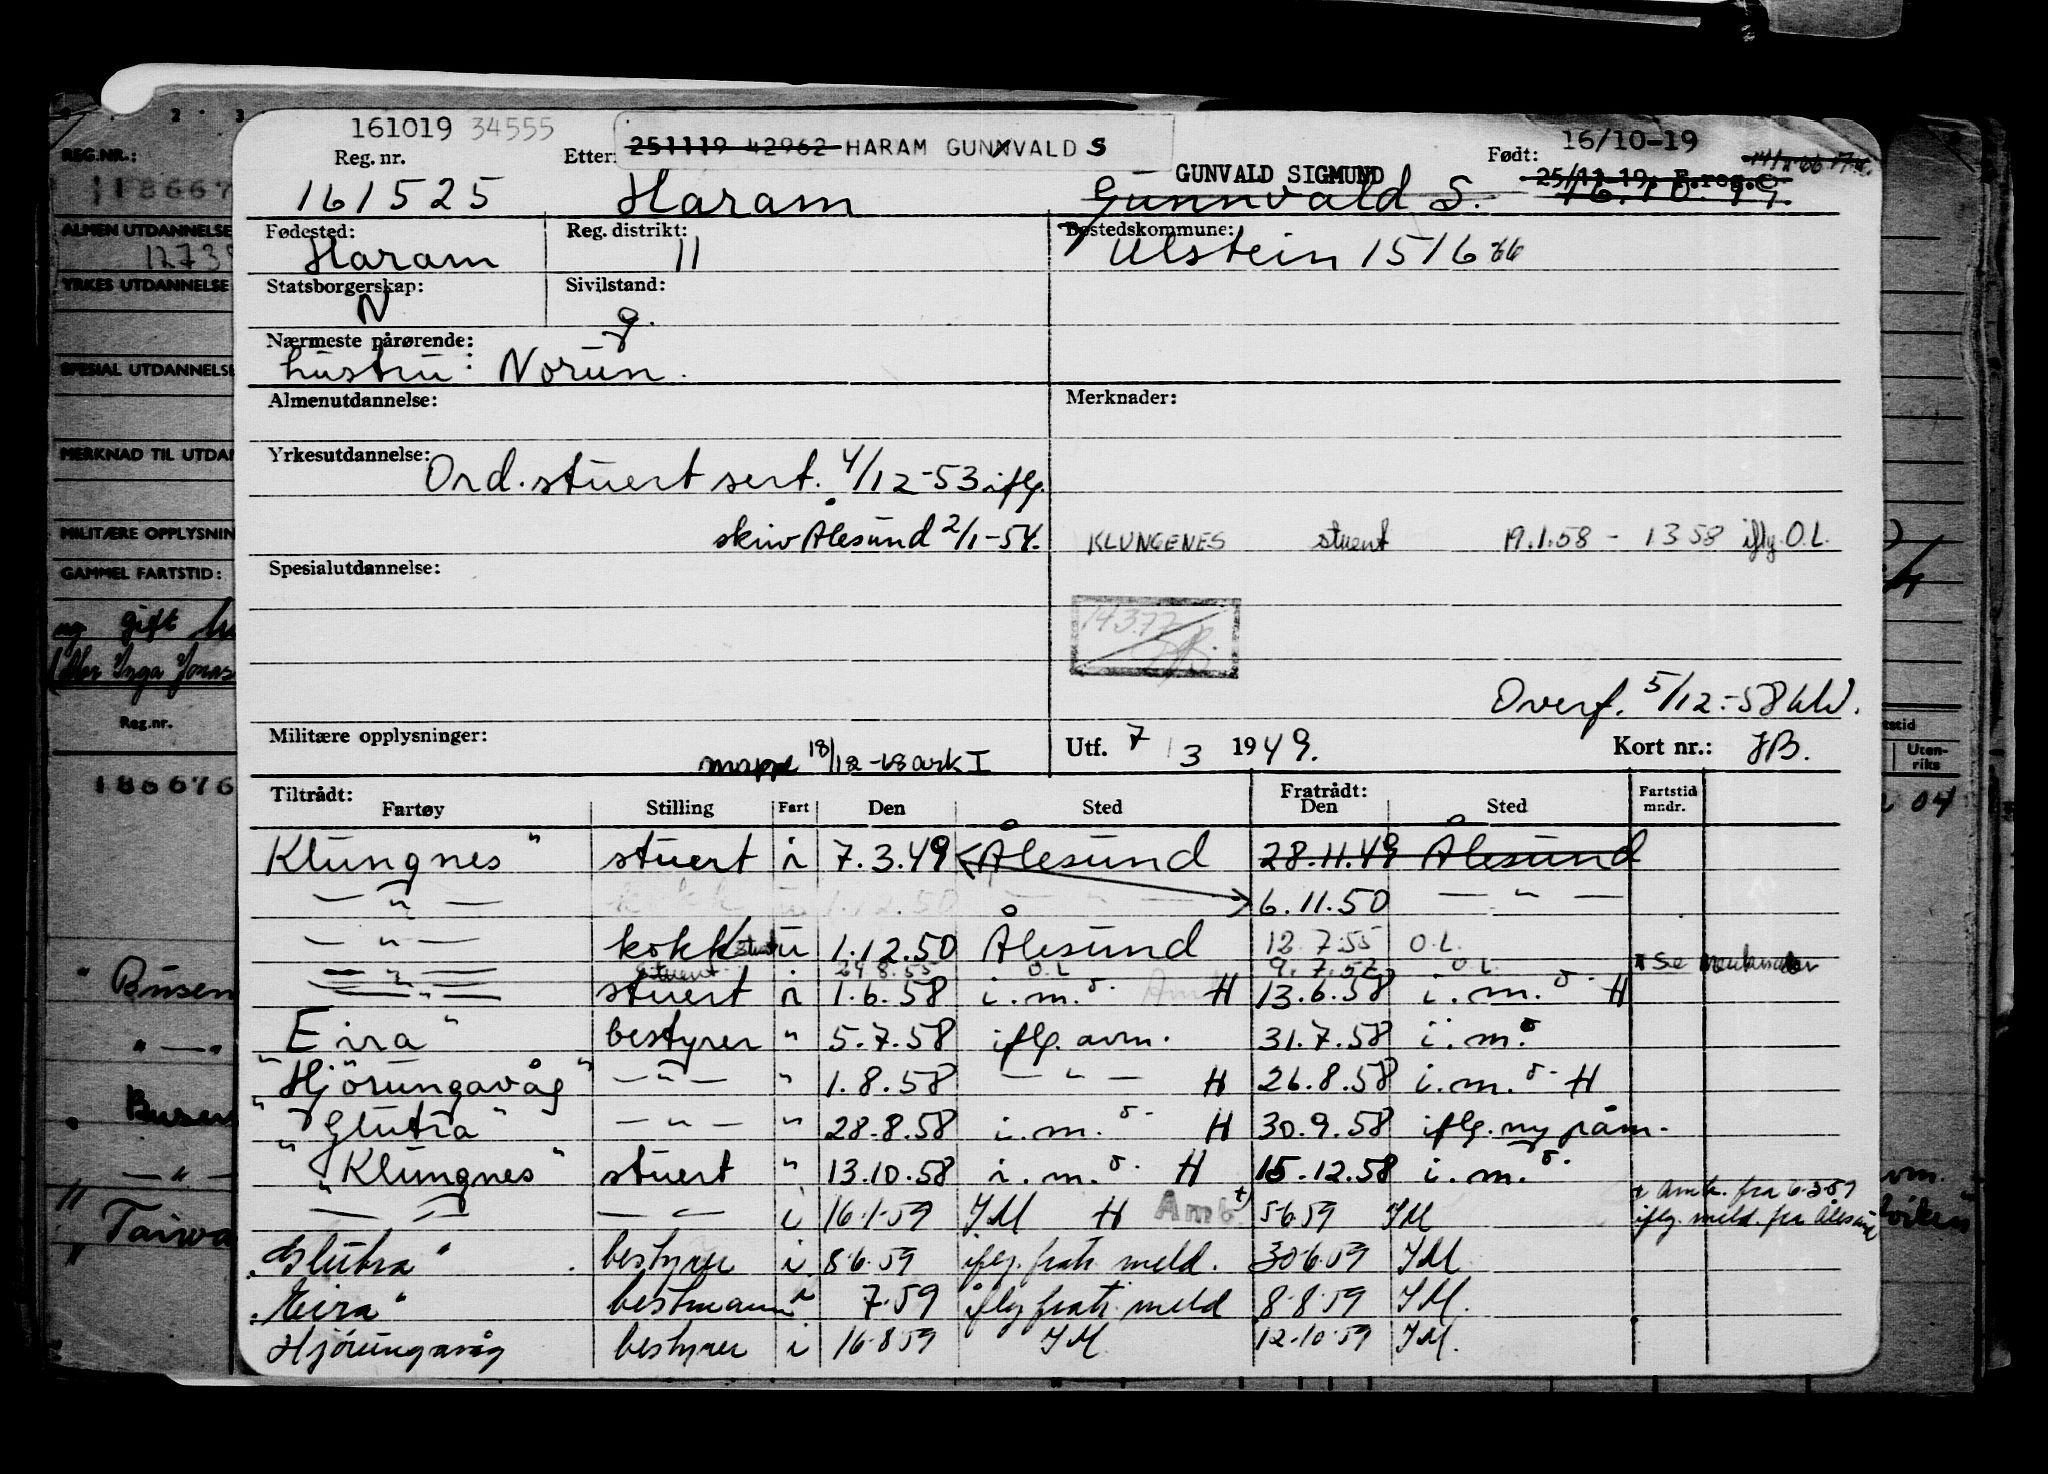 161019 34555
251119 42962 HARAM GUNNVALD S
16/10-19
Reg. nr. Etter: Født:
GUNVALD SIGMUND 25/11-19. F.reg.o.
161525 Haram Gunnvald S. 16.10.19.
Fødested: Reg. distrikt: Bostedskommune:
Haram 11 Ulstein 1516 66
Statsborgerskap: Sivilstand:
N g.
Nærmeste pårørende:
hustru: Norun.
Almenutdannelse: Merknader:
Yrkesutdannelse:
Ord. stuert sert. 4/12-53 iflg.
skriv Ålesund 2/1-54. KLUNGENES stuert 19.1.58 - 1358 iflg. O.L.
Spesialutdannelse:
14377
Overf. 5/12-58
Militære opplysninger: Utf. 7/3 1949. Kort nr.: JB.
mappe 18/12-68 ark I
Tiltrådt: Fratrådt: Fartstid
Fartøy Stilling Fart Den Sted Den Sted mndr.
Klungnes" stuert i 7.3.49 Ålesund 28.11.49 Ålesund
— " — kokk u 1.12.50 — " — 6.11.50 — " —
— " — kokk stuert u 1.12.50 Ålesund 12.7.55 O.L.
— " — stuert 24.8.55 O.L 9.7.57 O.L. se merknader
— " — stuert i 1.6.58 i.m.o. H 13.6.58 i.m.o. H
Eira" bestyrer " 5.7.58 iflg. avm. 31.7.58 i.m.o
"Hjörungavåg" — " — " 1.8.58 — " — H 26.8.58 i.m.o. H
"Glutra" — " — " 28.8.58 i.m.o. H 30.9.58 iflg. ny påm.
"Klungnes" stuert " 13.10.58 i.m.o. H 15.12.58 i.m.o.
— " — — " — i 16.1.59 J.M H Amb. +) 5.6.59 JM + Amb. fra 6.3.59
iflg. meld. fra Ålesund
"Glutra" bestyrer i 8.6.59 iflg. fratr. meld. 30.6.59 JM
"Eira" bestmann " 7.59 iflg fratr. meld 8.8.59 JM.
Hjörungavåg bestyrer i 16.8.59 JM. 12.10.59 JM.
2 3
REG.NR.:
118667
ALMEN UTDANNELSE
YRKES UTDANNELSE
SPESIAL UTDANNELSE
MERKNAD TIL UTDAN
MILITÆRE OPPLYSNIN
GAMMEL FARTSTID:
ug gift
Inga Jonas
Reg.nr.
186676
"Busen
"—"
" Busen
— " —
" Taiwa
"
Uten-
riks
04